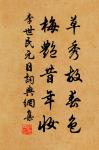 草秀故春色
梅艷昔年妝
李世民元日詞典網集